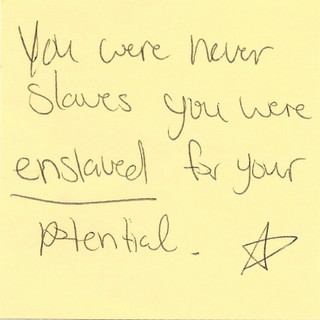 You were never
slaves you were
enslaved for your
potential.